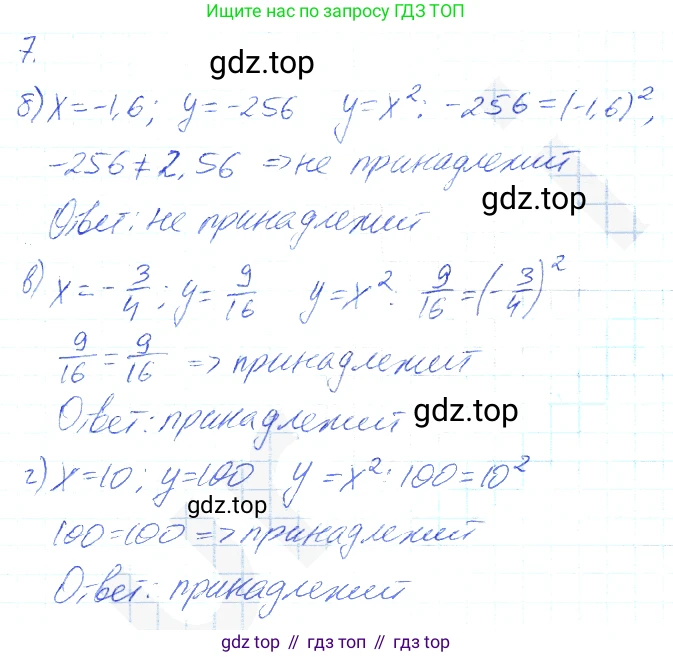 Ищите нас по запросу ГДЗ ТОП
7.
gdz.top
б) x=-1,6; y=-256 y=x²: -256=(-1,6)²,
-256≠2,56 => не принадлежит
gdz.top
Ответ: не принадлежит
в) x=-3/4; y=9/16 y=x²: 9/16=(-3/4)²
9/16=9/16 => принадлежит
Ответ: принадлежит gdz.top
г) x=10; y=100 y=x²: 100=10²
gdz.top
100=100 => принадлежит
Ответ: принадлежит
gdz top // гдз топ // gdz.top